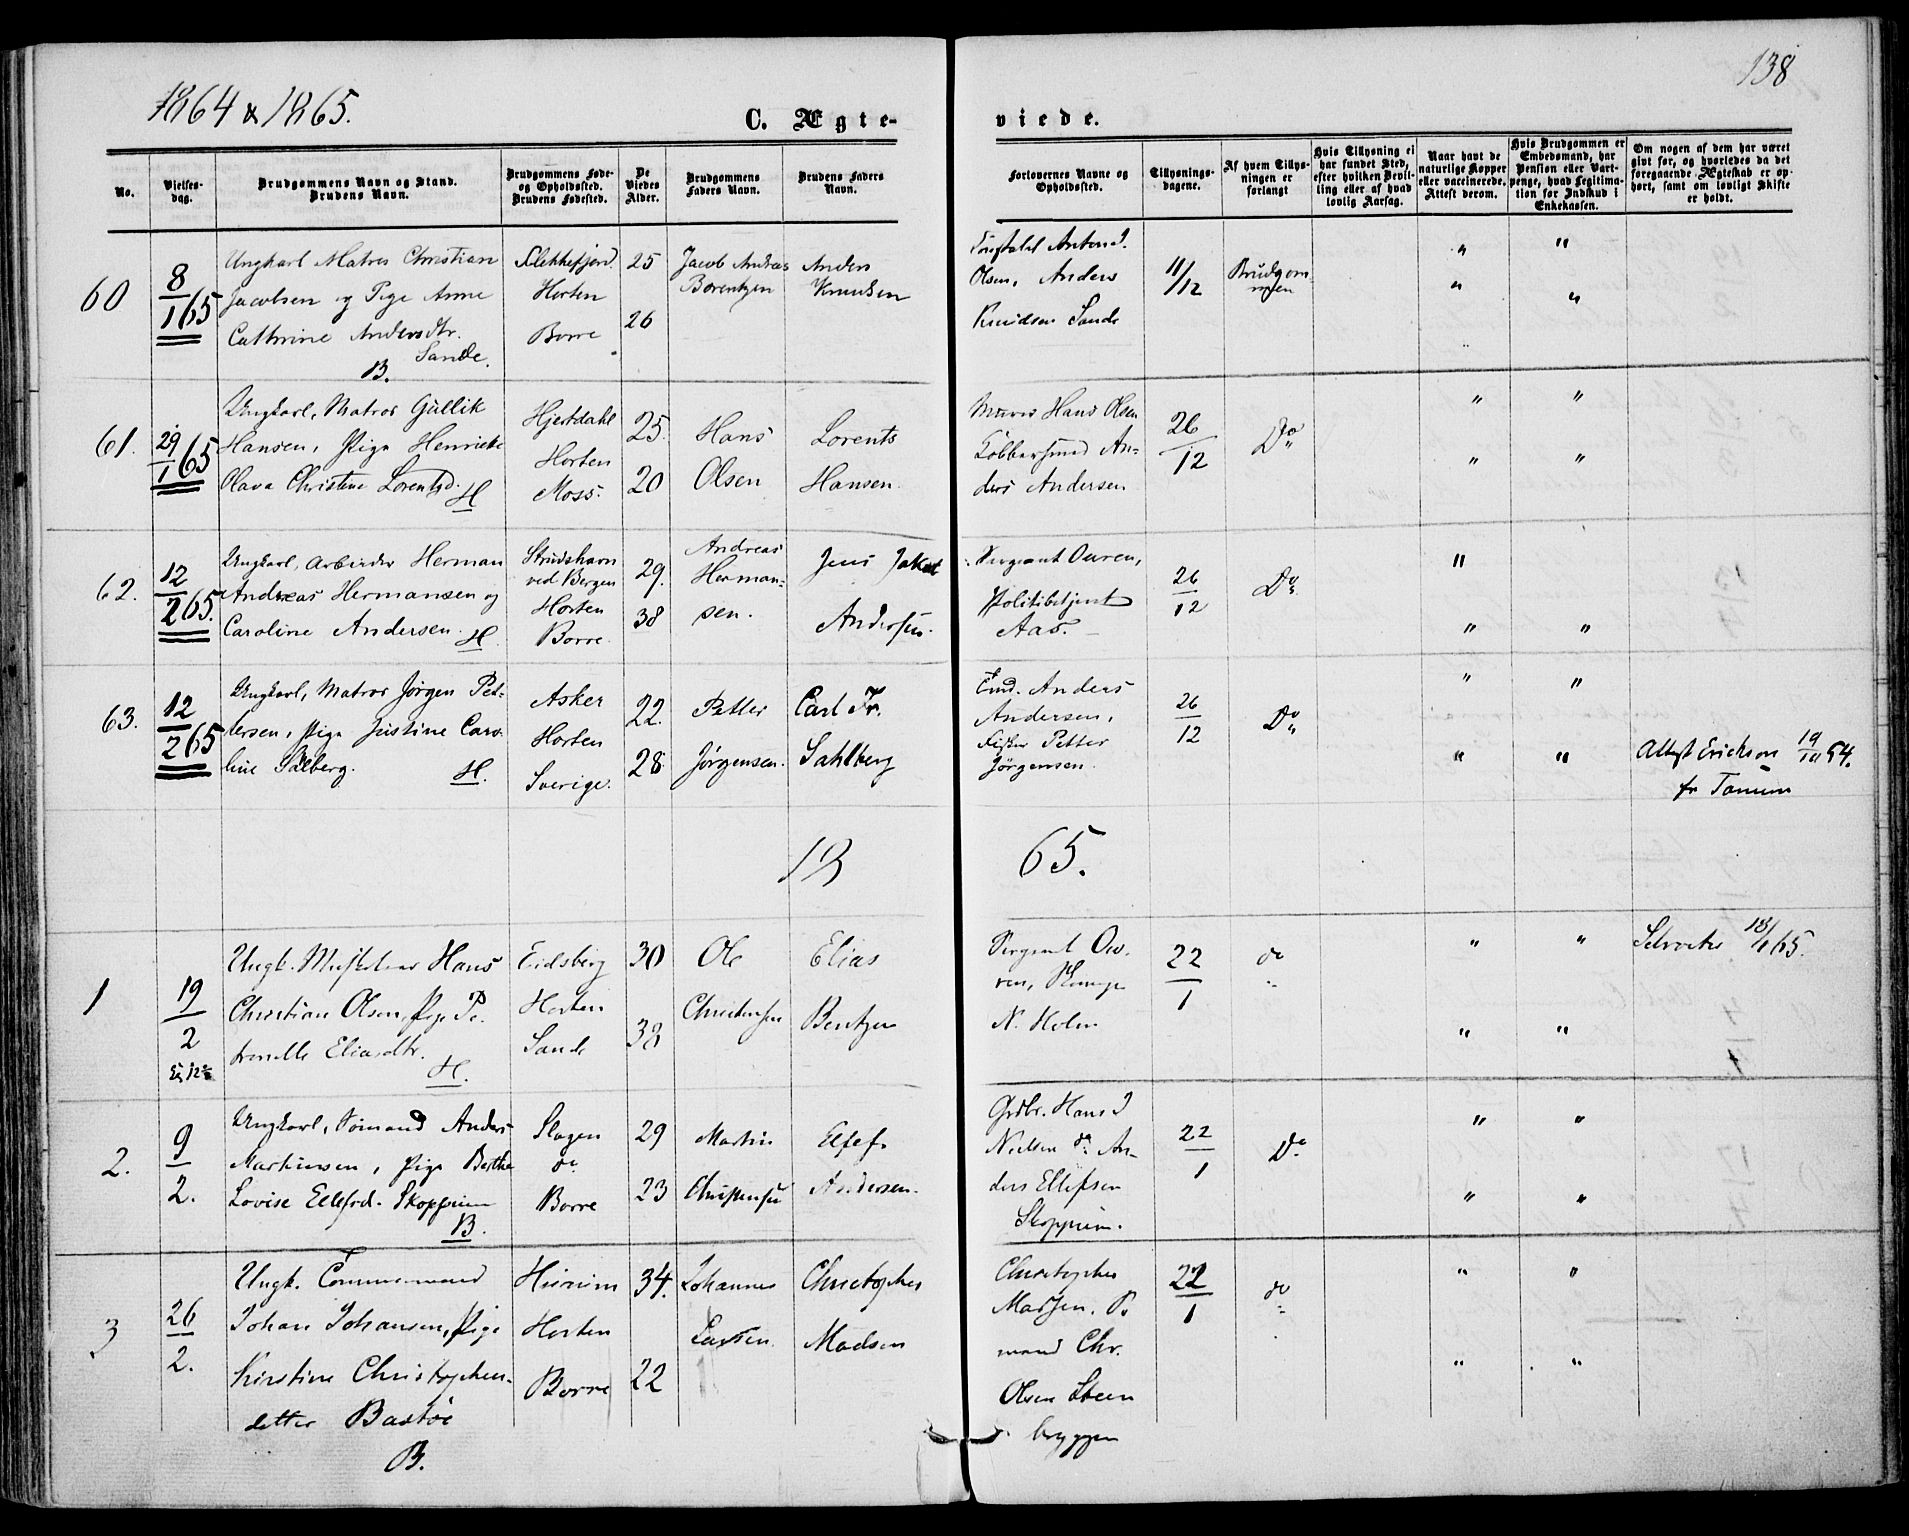 138
1864 & 1865.
C. Ægte-
viede.
No.
Vielses-
dag.
Brudgommens Navn og Stand.
Brudens Navn.
Brudgommens Føde-
og Opholdssted.
Brudens Fødested.
De
Viedes
Alder.
Brudgommens
Faders Navn.
Brudens Faders
Navn.
Forlovernes Navne og
Opholdssted.
Tillysnings-
dagene.
Af hvem Tillys-
ningen er
forlangt
Hvis Tillysning ei
har fundet Sted,
efter hvilken Bevil-
ling eller af hvad
lovlig Aarsag.
Naar havt de
naturlige Kopper
eller vaccinerede.
Attest derom.
Hvis Brudgommen er
Embedsmand, har
Pension eller Vart-
penge, hvad Legitima-
tion for Indskud i
Enkekassen.
Om nogen af dem har været
givt før, og hvorledes da det
foregaaende Ægteskab er op-
hørt, samt om lovligt Skifte
er holdt.
60
8/1 65
Ungkarl Matros Christian
Jacobsen og Pige Anne
Cathrine Andersdtr.
Sande.
B.
Flekkefjord
Horten
Borre
25
26
Jacob Andreas
Borentzen
Anders
Knudsen
Anton J.
Olsen, Anders
Knudsen Sande
11/12
Brudgom-
men
" "
" "
61.
29/1 65
Ungkarl, Matros Gullik
Hansen, Pige Henriette
Olava Christine Lorentsd.
H
Hjertdahl
Horten
Moss.
25.
20
Hans
Olsen
Lorents
Hansen.
Murer Hans Olsen
An-
ders Andersen
26/12
Do
" "
" "
62.
12/2 65.
Ungkarl, Arbeider Herman
Andreas Hermansen og
Caroline Andersen.
H.
Strudshavn
ved Bergen
Horten
Borre.
29.
38
Andreas
Herman-
sen.
Jens Jakob
Andersen.
Sergeant Ouren,
Politibetjent
Aas.
26/12
Do
"
" "
63.
12/2 65
Ungkarl, Matros Jørgen Pet-
tersen, Pige Justine Caro-
line Salberg.
H.
Asker
Horten
Sverige.
22.
28.
Petter
Jørgensen.
Carl Fr.
Sahlberg
Anders
Andersen,
Fisker Petter
Jørgensen.
26/12
Do
" "
" "
Attest Erickson 19/10 64.
fr Tanum
18
65.
1
19/2
Ungk. Hans
Christian Olsen, Pige Pe-
tronelle Eliasdtr.
H.
Eidsberg
Horten
Sande
30
38
Ole
Christensen
Elias
Bentzen
Sergeant Ou-
ren,
N. Holm
22/1
do
" "
" "
18/1 65.
2.
9/2.
Ungkarl, Sømand Anders
Martinsen, Pige Berthe
Lovise Ellefsd. Skoppum
B.
Slagen
do
Borre
29
23
Martin
Christensen
Ellef
Andersen.
Grdbr. Hans J
Nielsen do An-
ders Ellefsen
Skoppum.
22/1
Do
" "
" "
3
26/2.
Ungk. Tømmermand
Johan Johansen, Pige
Kirstine Christophers-
datter Bastøe
B.
Hurum
Horten
Borre
34.
22
Johannes
Larsen
Christopher
Madsen
Christopher
Madsen,
mand Chr.
Olsen Steen
bryggen
22/1
do
" "
" "